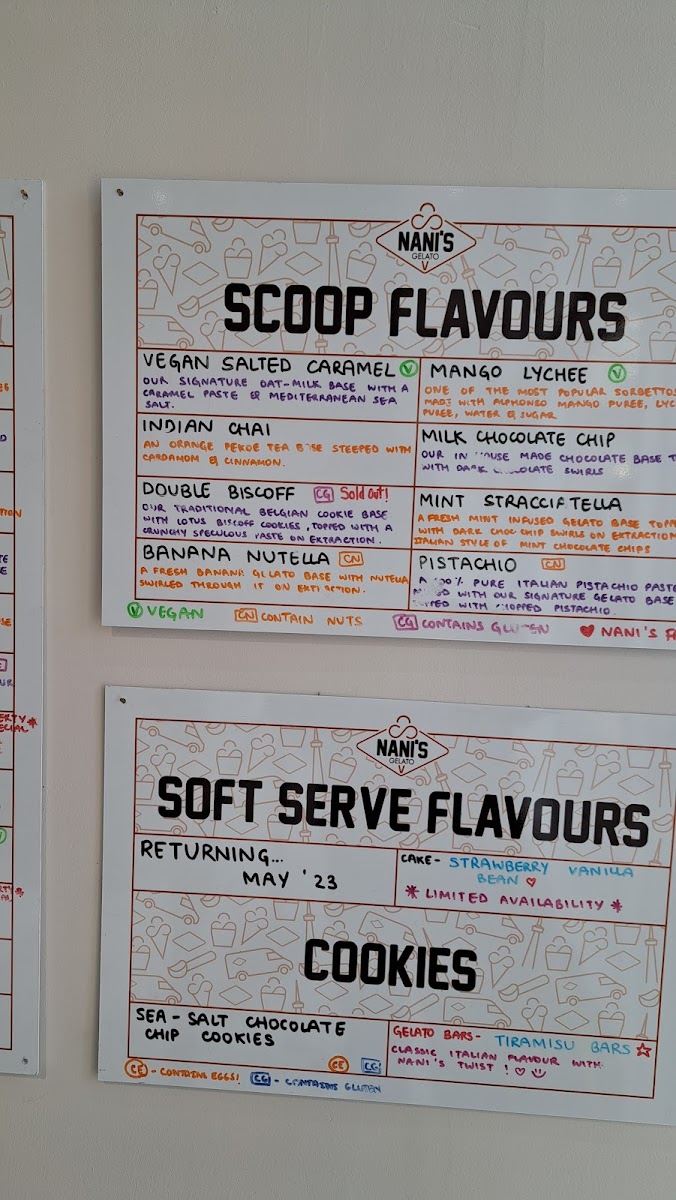 NANI'S
GELATO
SCOOP FLAVOURS
VEGAN SALTED CARAMEL V
OUR SIGNATURE OAT-MILK BASE WITH A
CARAMEL PASTE & MEDITERRANEAN SEA
SALT.
MANGO LYCHEE V
ONE OF THE MOST POPULAR SORBETTOS
MADE WITH ALPHONSO MANGO PUREE,
PUREE, WATER & SUGAR
INDIAN CHAI
AN ORANGE PEKOE TEA BASE STEEPED WITH
CARDAMOM & CINNAMON.
MILK CHOCOLATE CHIP
OUR IN HOUSE MADE CHOCOLATE BASE
WITH DARK CHOCOLATE SWIRLS
DOUBLE BISCOFF CG Sold out!
OUR TRADITIONAL BELGIAN COOKIE BASE
WITH LOTUS BISCOFF COOKIES, TOPPED WITH A
CRUNCHY SPECULOUS PASTE ON EXTRACTION.
MINT STRACCIATELLA
A FRESH MINT INFUSED GELATO BASE
WITH DARK CHOC CHIP SWIRLS ON EXTRACTION
ITALIAN STYLE OF MINT CHOCOLATE CHIPS
BANANA NUTELLA CN
A FRESH BANANA GELATO BASE WITH NUTELLA
SWIRLED THROUGH IT ON EXTRACTION.
PISTACHIO CN
A 100% PURE ITALIAN PISTACHIO PASTE
WITH OUR SIGNATURE GELATO BASE
TOPPED WITH CHOPPED PISTACHIO.
V VEGAN CN CONTAIN NUTS CG CONTAINS GLUTEN ♥ NANI'S
NANI'S
GELATO
SOFT SERVE FLAVOURS
RETURNING...
MAY '23
CAKE- STRAWBERRY VANILLA
BEAN ♡
* LIMITED AVAILABILITY *
COOKIES
SEA-SALT CHOCOLATE
CHIP COOKIES
CE CG
GELATO BARS- TIRAMISU BARS ☆
CLASSIC ITALIAN FLAVOUR WITH
NANI'S TWIST ! ♡
CE - CONTAINS EGGS! CG - CONTAINS GLUTEN